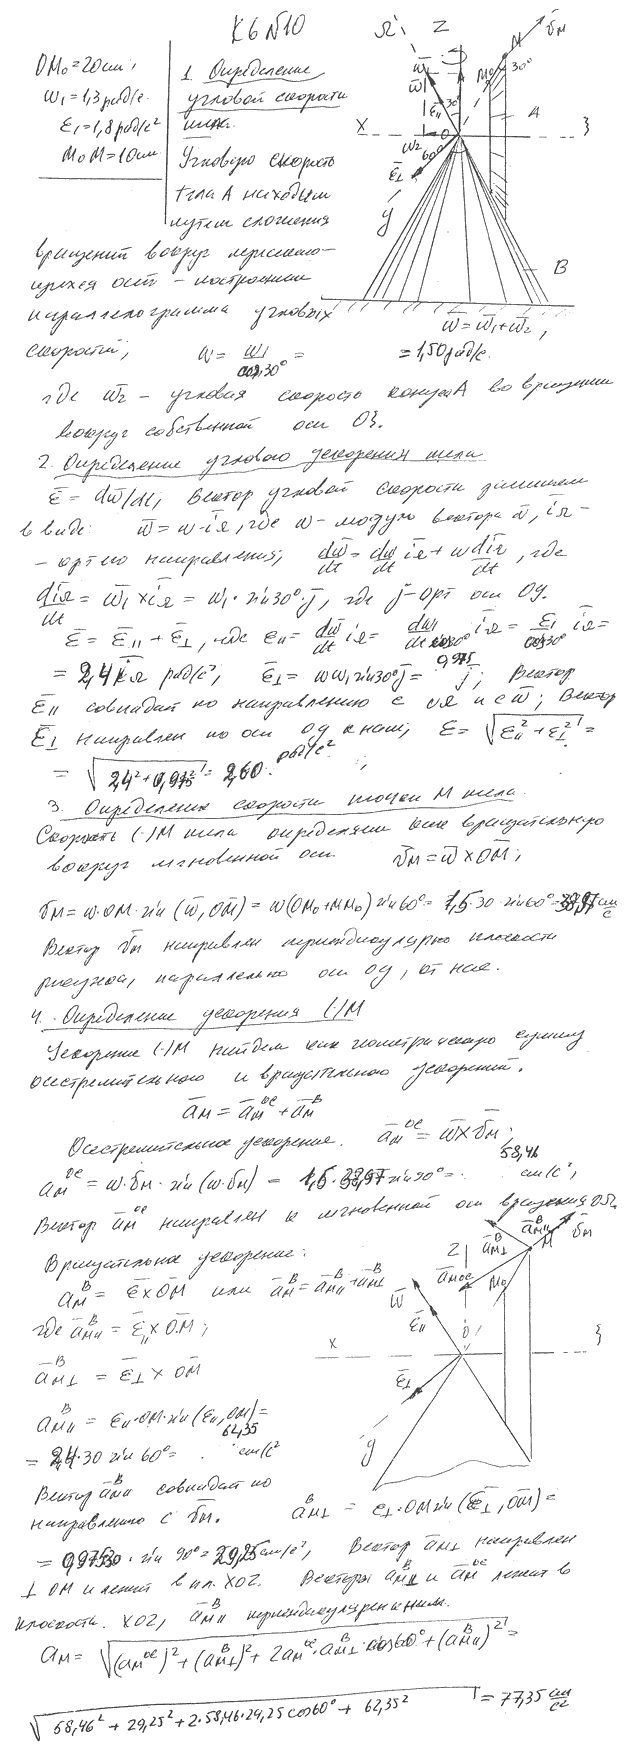 К6 №10
OM₀=20см;
ω₁=1,3рад/с
ε₁=1,8рад/с²
M₀M=10см
1 Определение
угловой скорости
тела.
Угловую скорость
тела А находим
путем сложения
вращений вокруг пересекаю-
щихся осей – построением
параллелограмма угловых
скоростей;
ω̄=ω̄₁+ω̄₂,
ω = ω₁/cos30° = =1,50рад/с.
где ω̄₂ – угловая скорость конуса А во вращении
вокруг собственной оси Oз.
2. Определение углового ускорения тела
ε̄ = dω̄/dt, Вектор угловой скорости запишем
в виде: ω̄ = ω·īΩ, где ω – модуль вектора ω̄, īΩ –
– орт по направлению; dω̄/dt = dω/dt īΩ + ω dīΩ/dt, где
dīΩ/dt = ω̄₁×īΩ = ω₁·sin30°·j̄, где j̄-орт оси Oy.
ε̄ = ε̄∥ + ε̄⊥, где ε∥ = dω̄/dt īΩ = dω₁/dt cos30° īΩ = ε₁/cos30° īΩ =
= 2,4 īΩ рад/с², ε̄⊥ = ωω₁sin30°j̄ = 0,975 j̄; Вектор
ε̄∥ совпадает по направлению с и с ω̄; Вектор
ε̄⊥ направлен по оси Oy к нам; ε = √ε∥²+ε⊥² =
= √2,4²+0,975² = 2,60 рад/с²;
3. Определение скорости точки М тела.
Скорость (·)М тела определяем как вращательную
вокруг мгновенной оси. v̄м = ω̄ × OM̄;
vм = ω·OM·sin(ω̄,OM̄) = ω(OM₀+MM₀)sin60° = 1,5·30·sin60° = 38,97 см/с
Вектор v̄м направлен перпендикулярно плоскости
рисунка, параллельно оси Oy, от нас.
4. Определение ускорения (·)М
Ускорение (·)М найдем как геометрическую сумму
осестремительного и вращательного ускорений.
āм = āмᵒᶜ + āмᴮ
Осестремительное ускорение. āмᵒᶜ = ω̄×v̄м;
aмᵒᶜ = ω·vм·sin(ω·vм) = 1,5·38,97 sin90° = 58,46 см/с²,
Вектор āмᵒᶜ направлен к мгновенной оси вращения OΩ.
Вращательное ускорение:
āмᴮ = ε̄×OM̄ или āмᴮ = āм∥ᴮ + āм⊥ᴮ
где āм∥ᴮ = ε̄∥×OM̄;
āм⊥ᴮ = ε̄⊥ × OM̄
aм∥ᴮ = ε∥·OM·sin(ε∥,OM) =
= 2,4·30 sin60° = 62,35 см/с²
Вектор āм∥ᴮ совпадает по
направлению с v̄м. aм⊥ᴮ = ε⊥·OM sin(ε̄⊥,OM̄) =
= 0,975·30 · sin 90° = 29,25 см/с², Вектор āм⊥ направлен
⊥ OM и лежит в пл. XOZ. Векторы āм⊥ᴮ и āмᵒᶜ лежат в
плоскости XOZ, āм∥ᴮ перпендикулярен к ним.
aм = √(aмᵒᶜ)²+(aм⊥ᴮ)²+2aмᵒᶜ·aм⊥ᴮ·cos60°+(aм∥ᴮ)² =
√58,46²+29,25²+2·58,46·29,25cos60°+62,35² = 77,35 см/с²